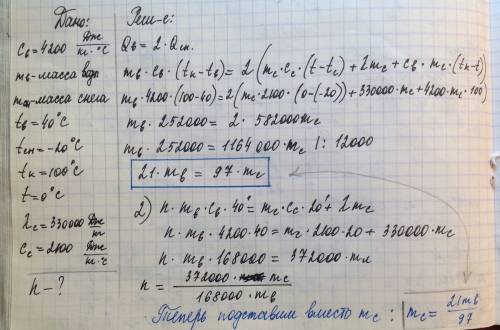 Дано:
c_в=4200 Дж/кг·°C
m_в-масса воды
m_сн-масса снега
t_в=40°C
t_сн=-20°C
t_к=100°C
t=0°C
λ_с=330000 Дж/кг
c_с=2100 Дж/кг·°C
n-?
Реш-е:
Q_в=2·Q_сн.
m_в·c_в·(t_к-t_в)=2(m_с·c_с·(t-t_с)+λm_с+c_в·m_с(t_к-t))
m_в·4200·(100-40)=2(m_с·2100·(0-(-20))+330000·m_с+4200·m_с·100)
m_в·252000=2·582000m_с
m_в·252000=1164000·m_с |:12000
21·m_в=97·m_с
2) n·m_в·c_в·40°=m_с·c_с·20°+λm_с
n·m_в·4200·40=m_с·2100·20+330000·m_с
n·m_в·168000=372000·m_с
n=372000·m_с/168000·m_в
Теперь подставим вместо m_с: m_с=21m_в/97